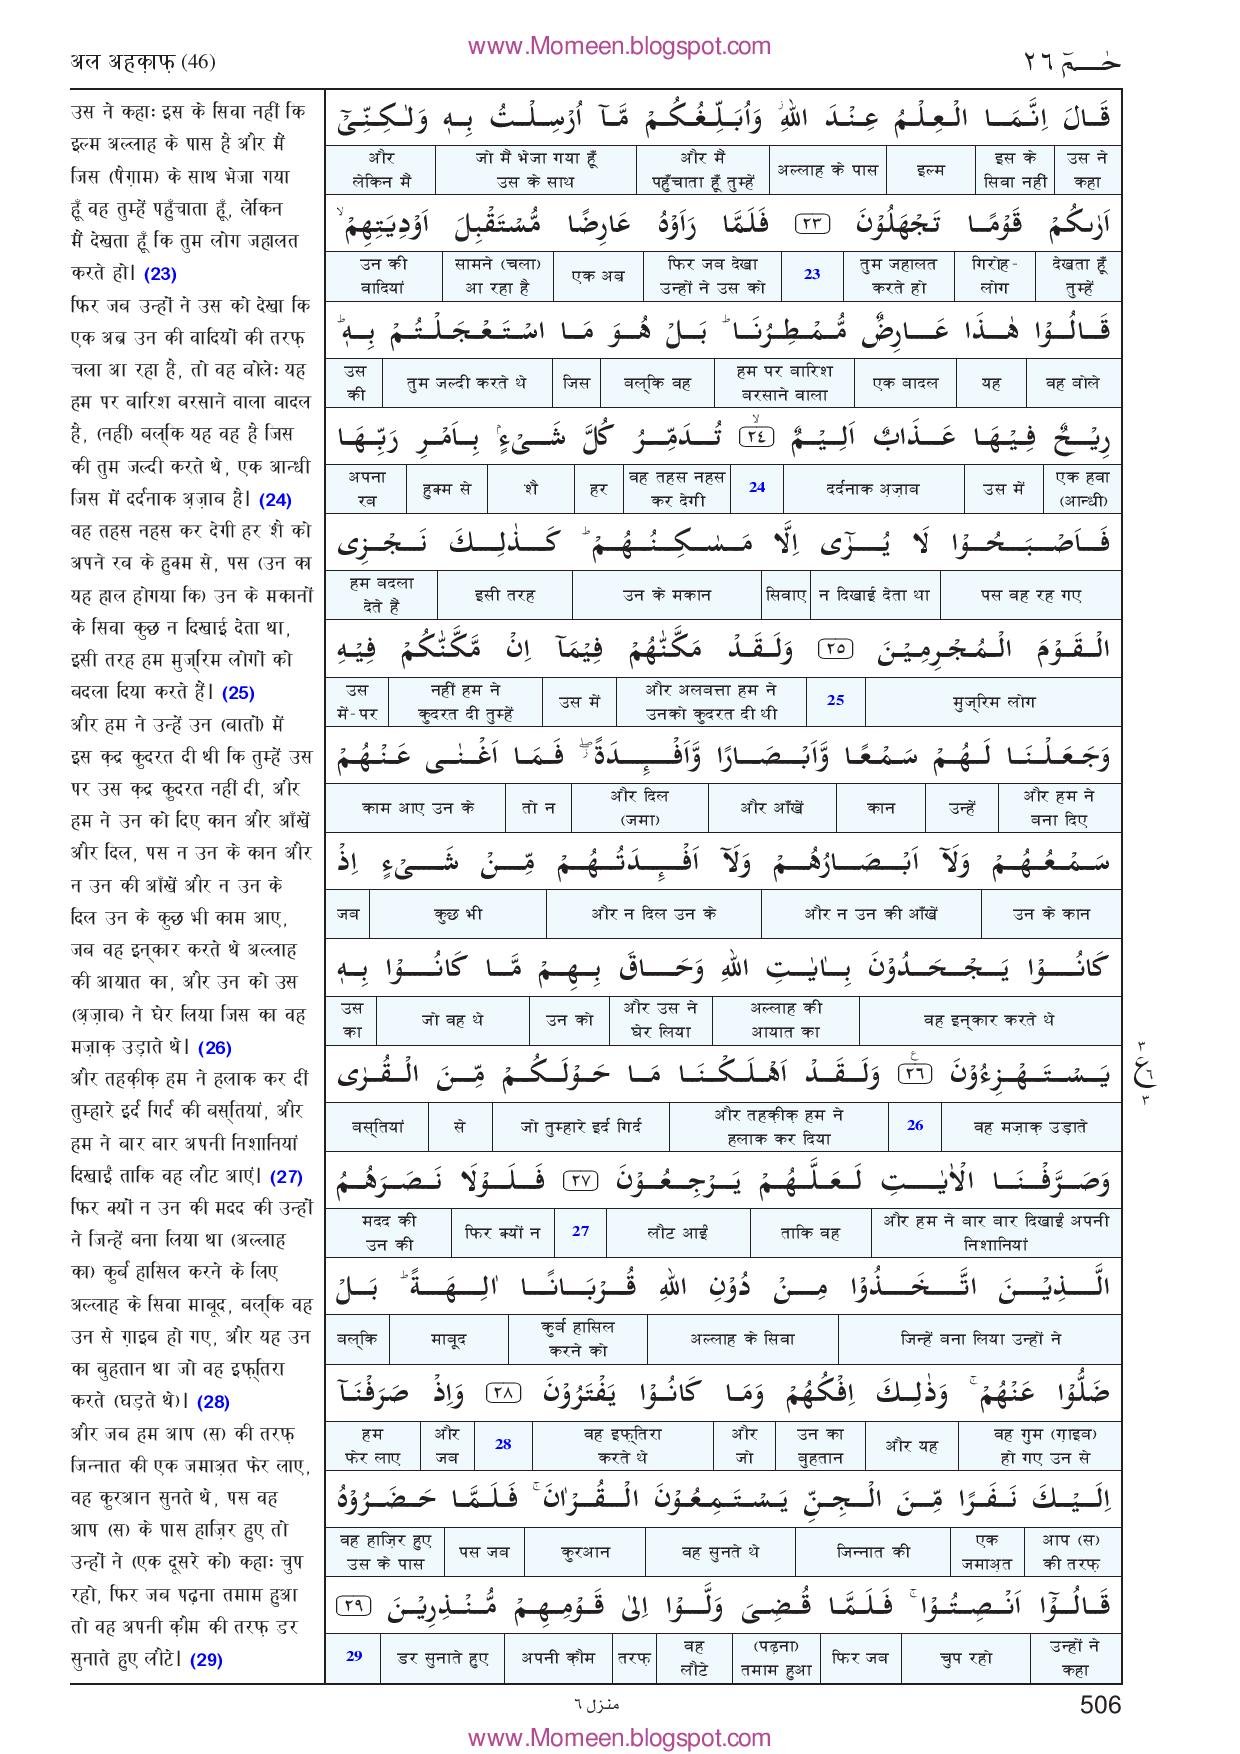 www.Momeen.blogspot.com
अल अहक़ाफ़ (46)
حٰـــمٓ ٢٦
उस ने कहाः इस के सिवा नहीं कि
इल्म अल्लाह के पास है और मैं
जिस (पैग़ाम) के साथ भेजा गया
हूँ वह तुम्हें पहुँचाता हूँ, लेकिन
मैं देखता हूँ कि तुम लोग जहालत
करते हो। (23)
फिर जब उन्हों ने उस को देखा कि
एक अब्र उन की वादियों की तरफ़
चला आ रहा है, तो वह बोलेः यह
हम पर बारिश बरसाने वाला बादल
है, (नहीं) बल्कि यह वह है जिस
की तुम जल्दी करते थे, एक आन्धी
जिस में दर्दनाक अ़ज़ाब है। (24)
वह तहस नहस कर देगी हर शै को
अपने रब के हुक्म से, पस (उन का
यह हाल होगया कि) उन के मकानों
के सिवा कुछ न दिखाई देता था,
इसी तरह हम मुज्रिम लोगों को
बदला दिया करते हैं। (25)
और हम ने उन्हें उन (बातों) में
इस क़द्र कुदरत दी थी कि तुम्हें उस
पर उस क़द्र कुदरत नहीं दी, और
हम ने उन को दिए कान और आँखें
और दिल, पस न उन के कान और
न उन की आँखें और न उन के
दिल उन के कुछ भी काम आए,
जब वह इन्कार करते थे अल्लाह
की आयात का, और उन को उस
(अ़ज़ाब) ने घेर लिया जिस का वह
मज़ाक़ उड़ाते थे। (26)
और तहक़ीक़ हम ने हलाक कर दीं
तुम्हारे इर्द गिर्द की बस्तियां, और
हम ने बार बार अपनी निशानियां
दिखाईं ताकि वह लौट आएं। (27)
फिर क्यों न उन की मदद की उन्हों
ने जिन्हें बना लिया था (अल्लाह
का) कुर्ब हासिल करने के लिए
अल्लाह के सिवा माबूद, बल्कि वह
उन से ग़ाइब हो गए, और यह उन
का बुहतान था जो वह इफ़्तिरा
करते (घड़ते थे)। (28)
और जब हम आप (स) की तरफ़
जिन्नात की एक जमाअ़त फेर लाए,
वह कुरआन सुनते थे, पस वह
आप (स) के पास हाज़िर हुए तो
उन्हों ने (एक दूसरे को) कहाः चुप
रहो, फिर जब पढ़ना तमाम हुआ
तो वह अपनी क़ौम की तरफ़ डर
सुनाते हुए लौटे। (29)
قَالَ اِنَّمَا الْعِلْمُ عِنْدَ اللّٰهِ ۖ وَاُبَلِّغُكُمْ مَّآ اُرْسِلْتُ بِهٖ وَلٰكِنِّىْٓ
उस ने कहा | इस के सिवा नहीं | इल्म | अल्लाह के पास | और मैं पहुँचाता हूँ तुम्हें | जो मैं भेजा गया हूँ उस के साथ | और लेकिन मैं
اَرٰىكُمْ قَوْمًا تَجْهَلُوْنَ ٢٣ فَلَمَّا رَاَوْهُ عَارِضًا مُّسْتَقْبِلَ اَوْدِيَتِهِمْ ۙ
देखता हूँ तुम्हें | गिरोह-लोग | तुम जहालत करते हो | 23 | फिर जब देखा उन्हों ने उस को | एक अब्र | सामने (चला) आ रहा है | उन की वादियां
قَالُوْا هٰذَا عَارِضٌ مُّمْطِرُنَا ؕ بَلْ هُوَ مَا اسْتَعْجَلْتُمْ بِهٖ ؕ
वह बोले | यह | एक बादल | हम पर बारिश बरसाने वाला | बल्कि वह | जिस | तुम जल्दी करते थे | उस की
رِيْحٌ فِيْهَا عَذَابٌ اَلِيْمٌ ۙ ٢٤ تُدَمِّرُ كُلَّ شَىْءٍۭ بِاَمْرِ رَبِّهَا
एक हवा (आन्धी) | उस में | दर्दनाक अ़ज़ाब | 24 | वह तहस नहस कर देगी | हर | शै | हुक्म से | अपना रब
فَاَصْبَحُوْا لَا يُرٰٓى اِلَّا مَسٰكِنُهُمْ ؕ كَذٰلِكَ نَجْزِى
पस वह रह गए | न दिखाई देता था | सिवाए | उन के मकान | इसी तरह | हम बदला देते हैं
الْقَوْمَ الْمُجْرِمِيْنَ ٢٥ وَلَقَدْ مَكَّنّٰهُمْ فِيْمَآ اِنْ مَّكَّنّٰكُمْ فِيْهِ
मुज्रिम लोग | 25 | और अलबत्ता हम ने उनको कुदरत दी थी | उस में | नहीं हम ने कुदरत दी तुम्हें | उस में-पर
وَجَعَلْنَا لَهُمْ سَمْعًا وَّاَبْصَارًا وَّاَفْـِٕدَةً ۖ فَمَا اَغْنٰى عَنْهُمْ
और हम ने बना दिए | उन्हें | कान | और आँखें | और दिल (जमा) | तो न | काम आए उन के
سَمْعُهُمْ وَلَآ اَبْصَارُهُمْ وَلَآ اَفْـِٕدَتُهُمْ مِّنْ شَىْءٍ اِذْ
उन के कान | और न उन की आँखें | और न दिल उन के | कुछ भी | जब
كَانُوْا يَجْحَدُوْنَ بِاٰيٰتِ اللّٰهِ وَحَاقَ بِهِمْ مَّا كَانُوْا بِهٖ
वह इन्कार करते थे | अल्लाह की आयात का | और उस ने घेर लिया | उन को | जो वह थे | उस का
يَسْتَهْزِءُوْنَ ٢٦ وَلَقَدْ اَهْلَكْنَا مَا حَوْلَكُمْ مِّنَ الْقُرٰى
٣ ع ٦ ٣
वह मज़ाक़ उड़ाते | 26 | और तहक़ीक़ हम ने हलाक कर दिया | जो तुम्हारे इर्द गिर्द | से | बस्तियां
وَصَرَّفْنَا الْاٰيٰتِ لَعَلَّهُمْ يَرْجِعُوْنَ ٢٧ فَلَوْلَا نَصَرَهُمُ
और हम ने बार बार दिखाईं अपनी निशानियां | ताकि वह | लौट आईं | 27 | फिर क्यों न | मदद की उन की
الَّذِيْنَ اتَّخَذُوْا مِنْ دُوْنِ اللّٰهِ قُرْبَانًا اٰلِهَةً ؕ بَلْ
जिन्हें बना लिया उन्हों ने | अल्लाह के सिवा | कुर्ब हासिल करने को | माबूद | बल्कि
ضَلُّوْا عَنْهُمْ ۚ وَذٰلِكَ اِفْكُهُمْ وَمَا كَانُوْا يَفْتَرُوْنَ ٢٨ وَاِذْ صَرَفْنَآ
वह गुम (ग़ाइब) हो गए उन से | और यह | उन का बुहतान | और जो | वह इफ़्तिरा करते थे | 28 | और जब | हम फेर लाए
اِلَيْكَ نَفَرًا مِّنَ الْجِنِّ يَسْتَمِعُوْنَ الْقُرْاٰنَ ۚ فَلَمَّا حَضَرُوْهُ
आप (स) की तरफ़ | एक जमाअ़त | जिन्नात की | वह सुनते थे | कुरआन | पस जब | वह हाज़िर हुए उस के पास
قَالُوْٓا اَنْصِتُوْا ۚ فَلَمَّا قُضِىَ وَلَّوْا اِلٰى قَوْمِهِمْ مُّنْذِرِيْنَ ٢٩
उन्हों ने कहा | चुप रहो | फिर जब | (पढ़ना) तमाम हुआ | वह लौटे | तरफ़ | अपनी क़ौम | डर सुनाते हुए | 29
منزل ٦
506
www.Momeen.blogspot.com